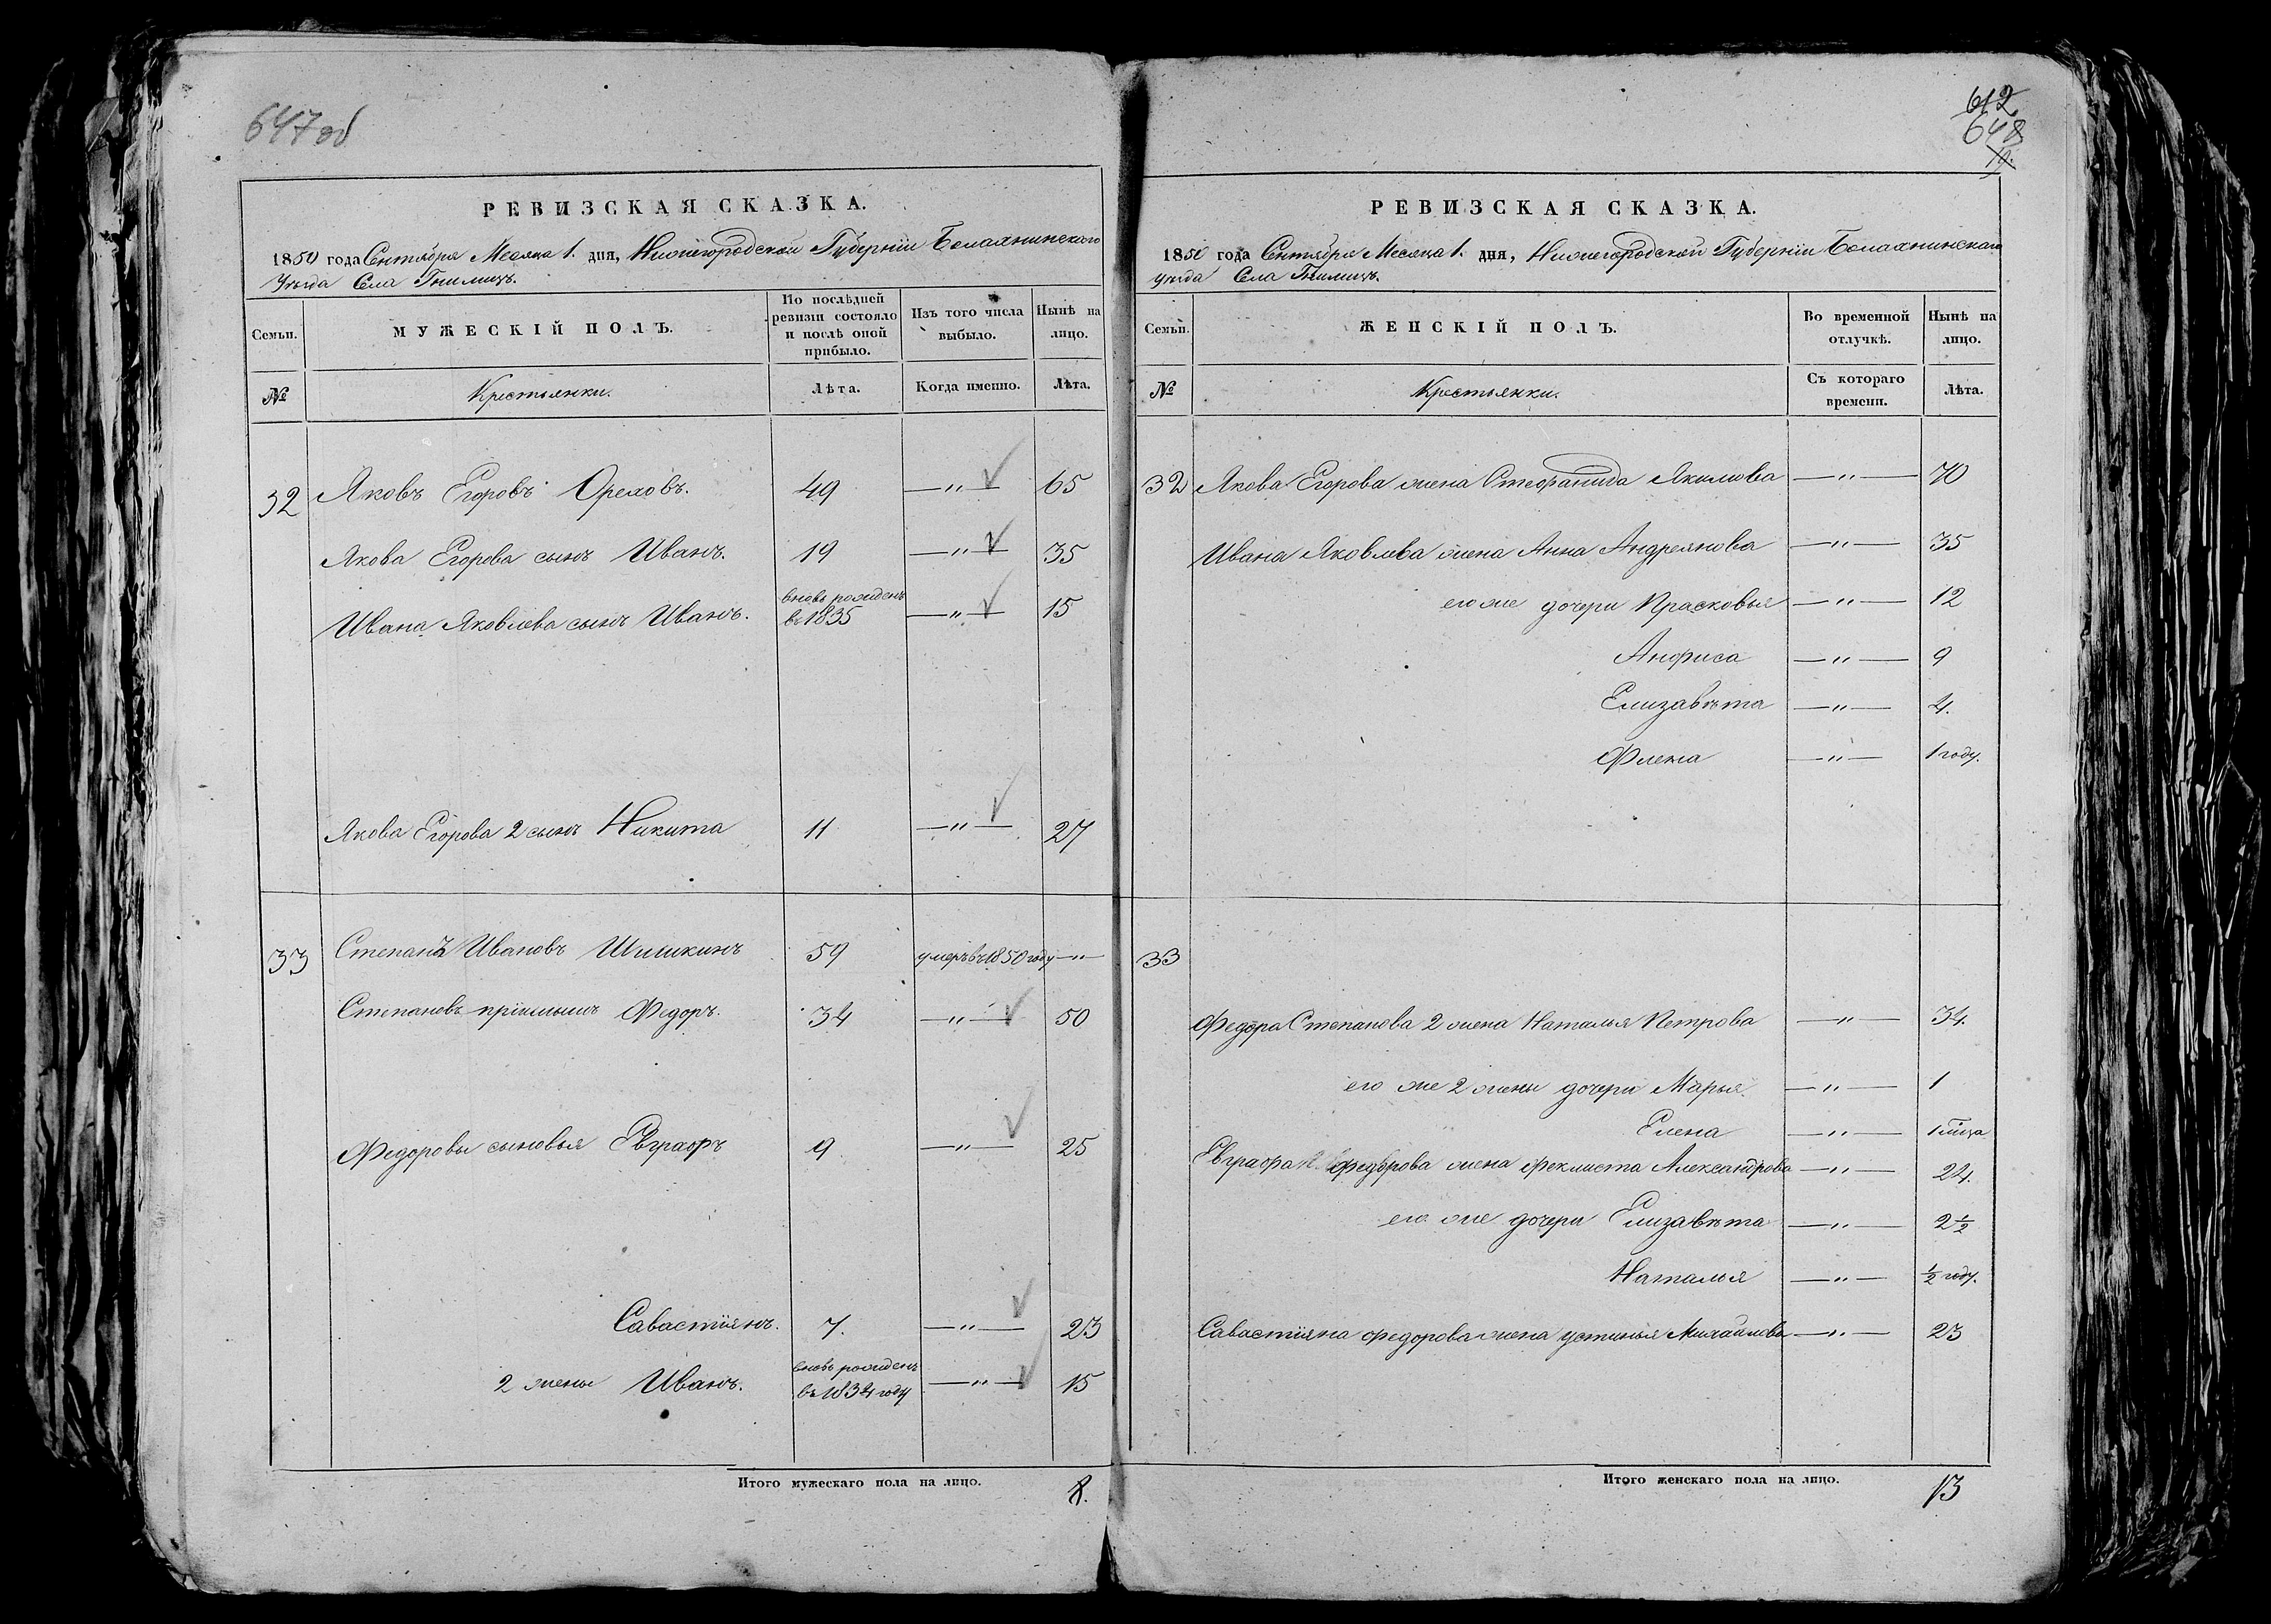 647 об
РЕВИЗСКАЯ СКАЗКА.
1850 года Сентября Месяца 1. дня, Нижегородской Губерніи Болахнинскаго
Уѣзда Села Гнилицъ.
Семьи. МУЖЕСКІЙ ПОЛЪ. По послѣдней ревизіи состояло и послѣ оной прибыло. Изъ того числа выбыло. Нынѣ на лицо.
№ Крестьянки. Лѣта. Когда именно. Лѣта.
32 Яковъ Егоровъ Ореховъ. 49 — " — 65
Якова Егорова сынъ Иванъ. 19 — " — 35
Ивана Яковлева сынъ Иванъ. вновь рожденъ въ 1835 — " — 15
Якова Егорова 2 сынъ Никита 11 — " — 27
33 Степанъ Ивановъ Шишкинъ 59 умеръ въ 1850 году — " —
Степановъ пріимышъ Федоръ. 34 — " — 50
Федоровы сыновья Евграфъ 9 — " — 25
Савастіянъ. 7. — " — 23
2 жены Иванъ. вновь рожденъ въ 1834 году — " — 15
Итого мужескаго пола на лицо. 8.
612
648
РЕВИЗСКАЯ СКАЗКА.
1850 года Сентября Месяца 1. дня, Нижегородской Губерніи Болахнинскаго
Уѣзда Села Гнилицъ.
Семьи. ЖЕНСКІЙ ПОЛЪ. Во временной отлучкѣ. Нынѣ на лицо.
№ Крестьянки. Съ котораго времени. Лѣта.
32 Якова Егорова жена Стефанида Якимова — " — 70
Ивана Яковлева жена Анна Андреянова — " — 35
его же дочери Прасковья — " — 12
Анфиса — " — 9
Елизавѣта — " — 4.
Флена — " — 1 году.
33
Федора Степанова 2 жена Наталья Петрова — " — 34.
его же 2 жены дочери Марья. — " — 1
Елена — " —
Евграфа Федорова жена Феклиста Александрова — " — 24.
его же дочери Елизавѣта — " — 2 ½
Наталья — " — ½ году.
Савастіяна Федорова жена Устинья Михайлова — " — 23
Итого женскаго пола на лицо. 13